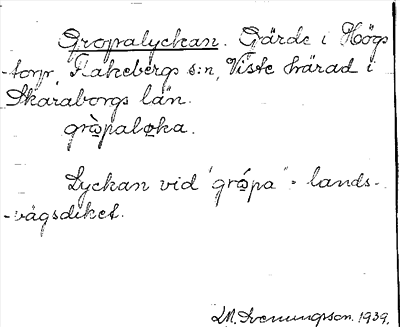 Gropalyckan. Gärde i Högs-
-torp, Flakebergs s:n, Viste härad i
Skaraborgs län.
grò̱palo̱ka.
Lyckan vid "gró̱pa" = lands-
-vägsdiket.
1939.